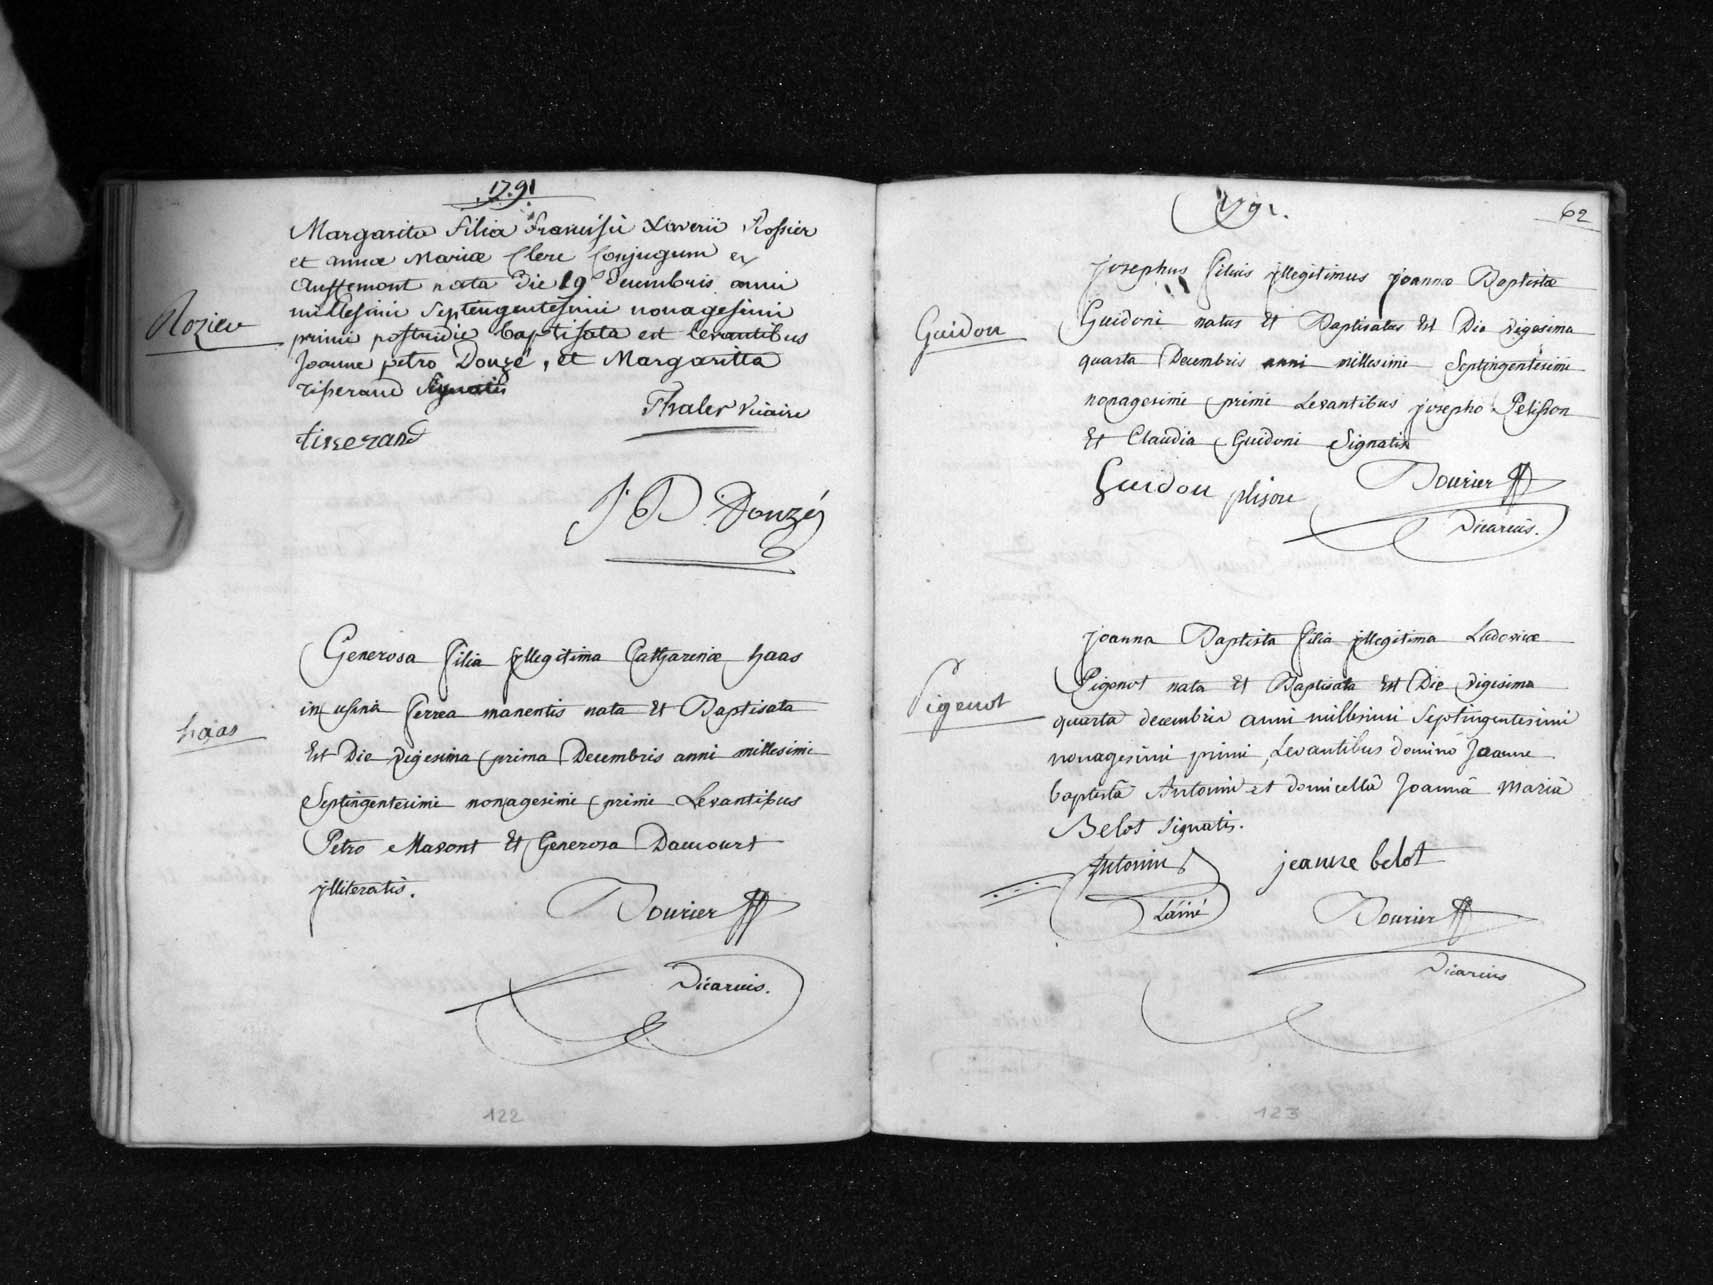 1791
Margarita filia Francisci Xaverii Rossier
et annæ Mariæ Clerc Conjugum ex
Auffemont nata Die 19 Decembris anni
millesimi Septengentesimi nonagesimi
primi postridie baptisata est levantibus
Joanne petro Douzé, et Margaritta
tisserand Signatis
Rozier
Thaler vicaire
tisserand
J. P. Douzé
Generosa filia yllegitima Catharinæ haas
in usina ferrea manentis nata Et Baptisata
Est Die vigesima prima Decembris anni millesimi
Septingentesimi nonagesimi primi Levantibus
Petro Mavont Et Generosa Daucourt
ylliteratis.
haas
Bourier
Vicarius.
122
1791.
62
josephus filius yllegitimus joannæ Baptistæ
Guidoni natus Et Baptisatus Est Die vigesima
quarta Decembris anni millesimi Septingentesimi
nonagesimi primi Levantibus josepho Pelisson
Et Claudia Guidoni Signatis
Guidon
Guidon plison
Bourier
Vicarius.
joanna Baptista filia yllegitima Ludovicæ
Pigenot nata Et Baptisata Est Die vigesima
quarta decembris anni millesimi Septingentesimi
nonagesimi primi, Levantibus domino Joanne
baptistâ Antonin et domicellâ Joannâ Mariâ
Belot signatis.
Pigenot
Antonin
jeanne belot
Lainé
Bourier
Vicarius
123